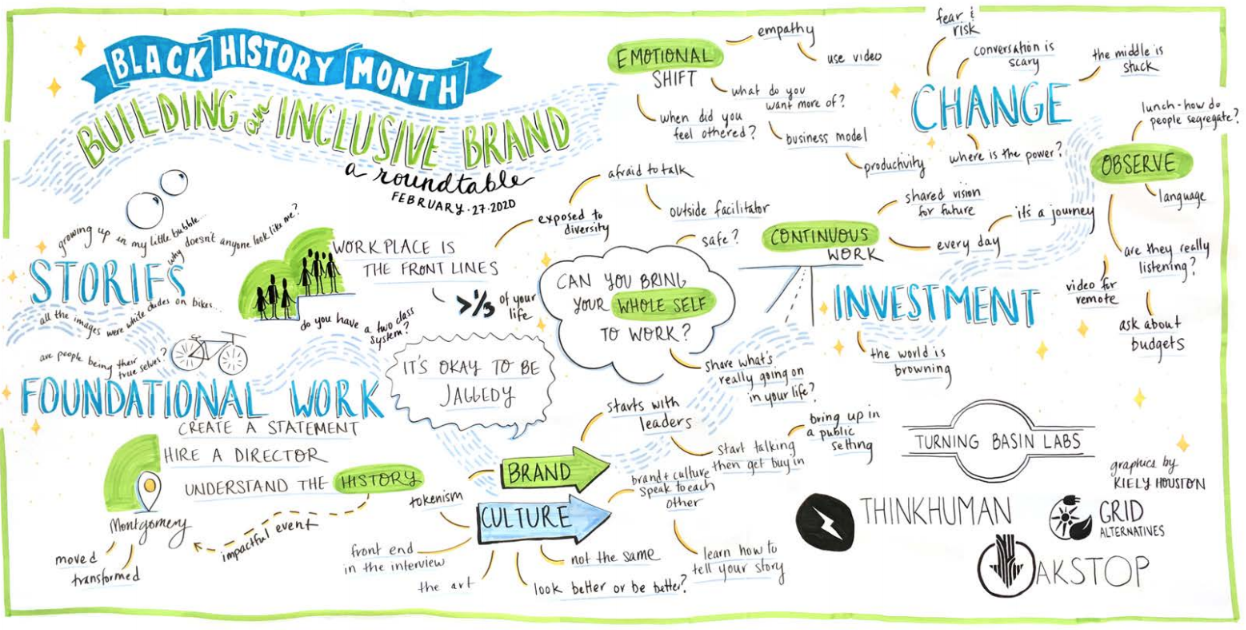 BLACK HISTORY MONTH
BUILDING an INCLUSIVE BRAND
a roundtable
FEBRUARY.27.2020
growing up in my little bubble...
why doesn't anyone look like me?
STORIES
all the images were white dudes on bikes...
are people being their
true selves?
WORKPLACE IS
THE FRONT LINES
>1/3 of your
life
do you have a two class
system?
exposed to
diversity
afraid to talk
outside facilitator
EMOTIONAL
SHIFT
empathy
use video
what do you
want more of?
when did you
feel othered?
business model
productivity
CHANGE
fear &
risk
conversation is
scary
the middle is
stuck
where is the power?
OBSERVE
lunch-how do
people segregate?
language
are they really
listening?
video for
remote
ask about
budgets
CONTINUOUS
WORK
shared vision
for future
every day
it's a journey
INVESTMENT
the world is
browning
CAN YOU BRING
YOUR WHOLE SELF
TO WORK?
safe?
share what's
really going on
in your life?
IT'S OKAY TO BE
JAGGEDY
FOUNDATIONAL WORK
CREATE A STATEMENT
HIRE A DIRECTOR
UNDERSTAND THE HISTORY
impactful event
Montgomery
moved
transformed
BRAND
starts with
leaders
start talking
then get buy in
bring up in
a public
setting
CULTURE
tokenism
brand & culture
speak to each
other
learn how to
tell your story
front end
in the interview
the art
look better or be better?
not the same
TURNING BASIN LABS
graphics by
KIELY HOUSTON
THINKHUMAN
GRID
ALTERNATIVES
OAKSTOP